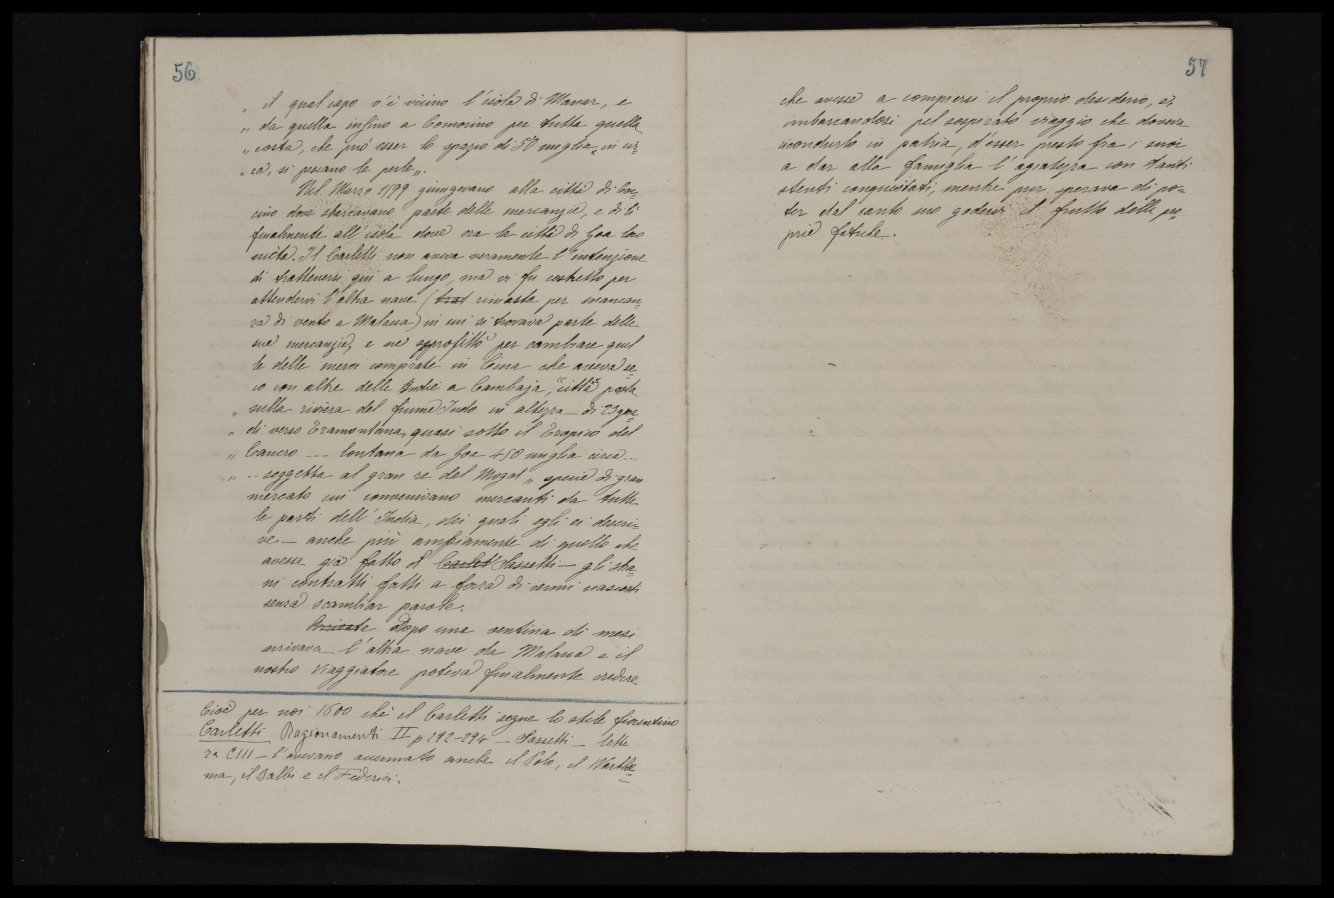 56
„ il qual capo v'è vicino l'isola di Manar, e
„ da quella infino a Comorino per tutta quella
„ costa, che può esser lo spazio di 50 miglia in cir-
„ ca, si pescano le perle„.
Nel Marzo 1599 giungevano alla città di Coc-
cino dove sbarcavano parte delle mercanzie, e di lì
finalmente all'isola dove era la città di Goa loro
meta. Il Carletti non aveva veramente l'intenzione
di trattenersi qui a lungo, ma vi fu costretto per
attendervi l'altra nave (trat rimasta per mancan-
za di vento a Malacca) in cui si trovava parte delle
sue mercanzie, e ne approfittò per cambiare quel
le delle merci comprate in Cina che aveva se-
co con altre delle Indie a Cambaja, "città posta
„ sulla riviera del fiume Indo in altezza - di 23 gra-
„ di verso Tramontana, quasi sotto il Tropico del
„ Cancro --- lontana da Goa 450 miglia circa...
„ ... soggetta al gran re del Mogol „ specie di gran
mercato cui convenivano mercanti da tutte
le parti dell'India, dei quali egli ci descri-
ve - anche più ampiamente di quello che
avesse già fatto il Carlet Sassetti - gli stra-
ni contratti fatti a forza di cenni nascosti
senza scambiar parole.
Arrivata Dopo una ventina di mesi
arrivava l'altra nave da Malacca e il
nostro viaggiatore poteva finalmente credere
Cioè per noi 1600 chè il Carletti segue lo stile fiorentino
Carletti Ragionamenti II p 292-294 - Sassetti - lette
ra CIII - l'avevano accennato anche il Polo, il Varthe-
ma, il Balbi e il Federici.
57
che avesse a compiersi il proprio desiderio, e,
imbarcandosi pel sospirato viaggio che doveva
ricondurlo in patria, d'esser presto fra i suoi
a dar alla famiglia l'agiatezza con tanti
stenti conquistati, mentre pur sperava di po-
ter dal canto suo godersi il frutto delle pro
prie fatiche.